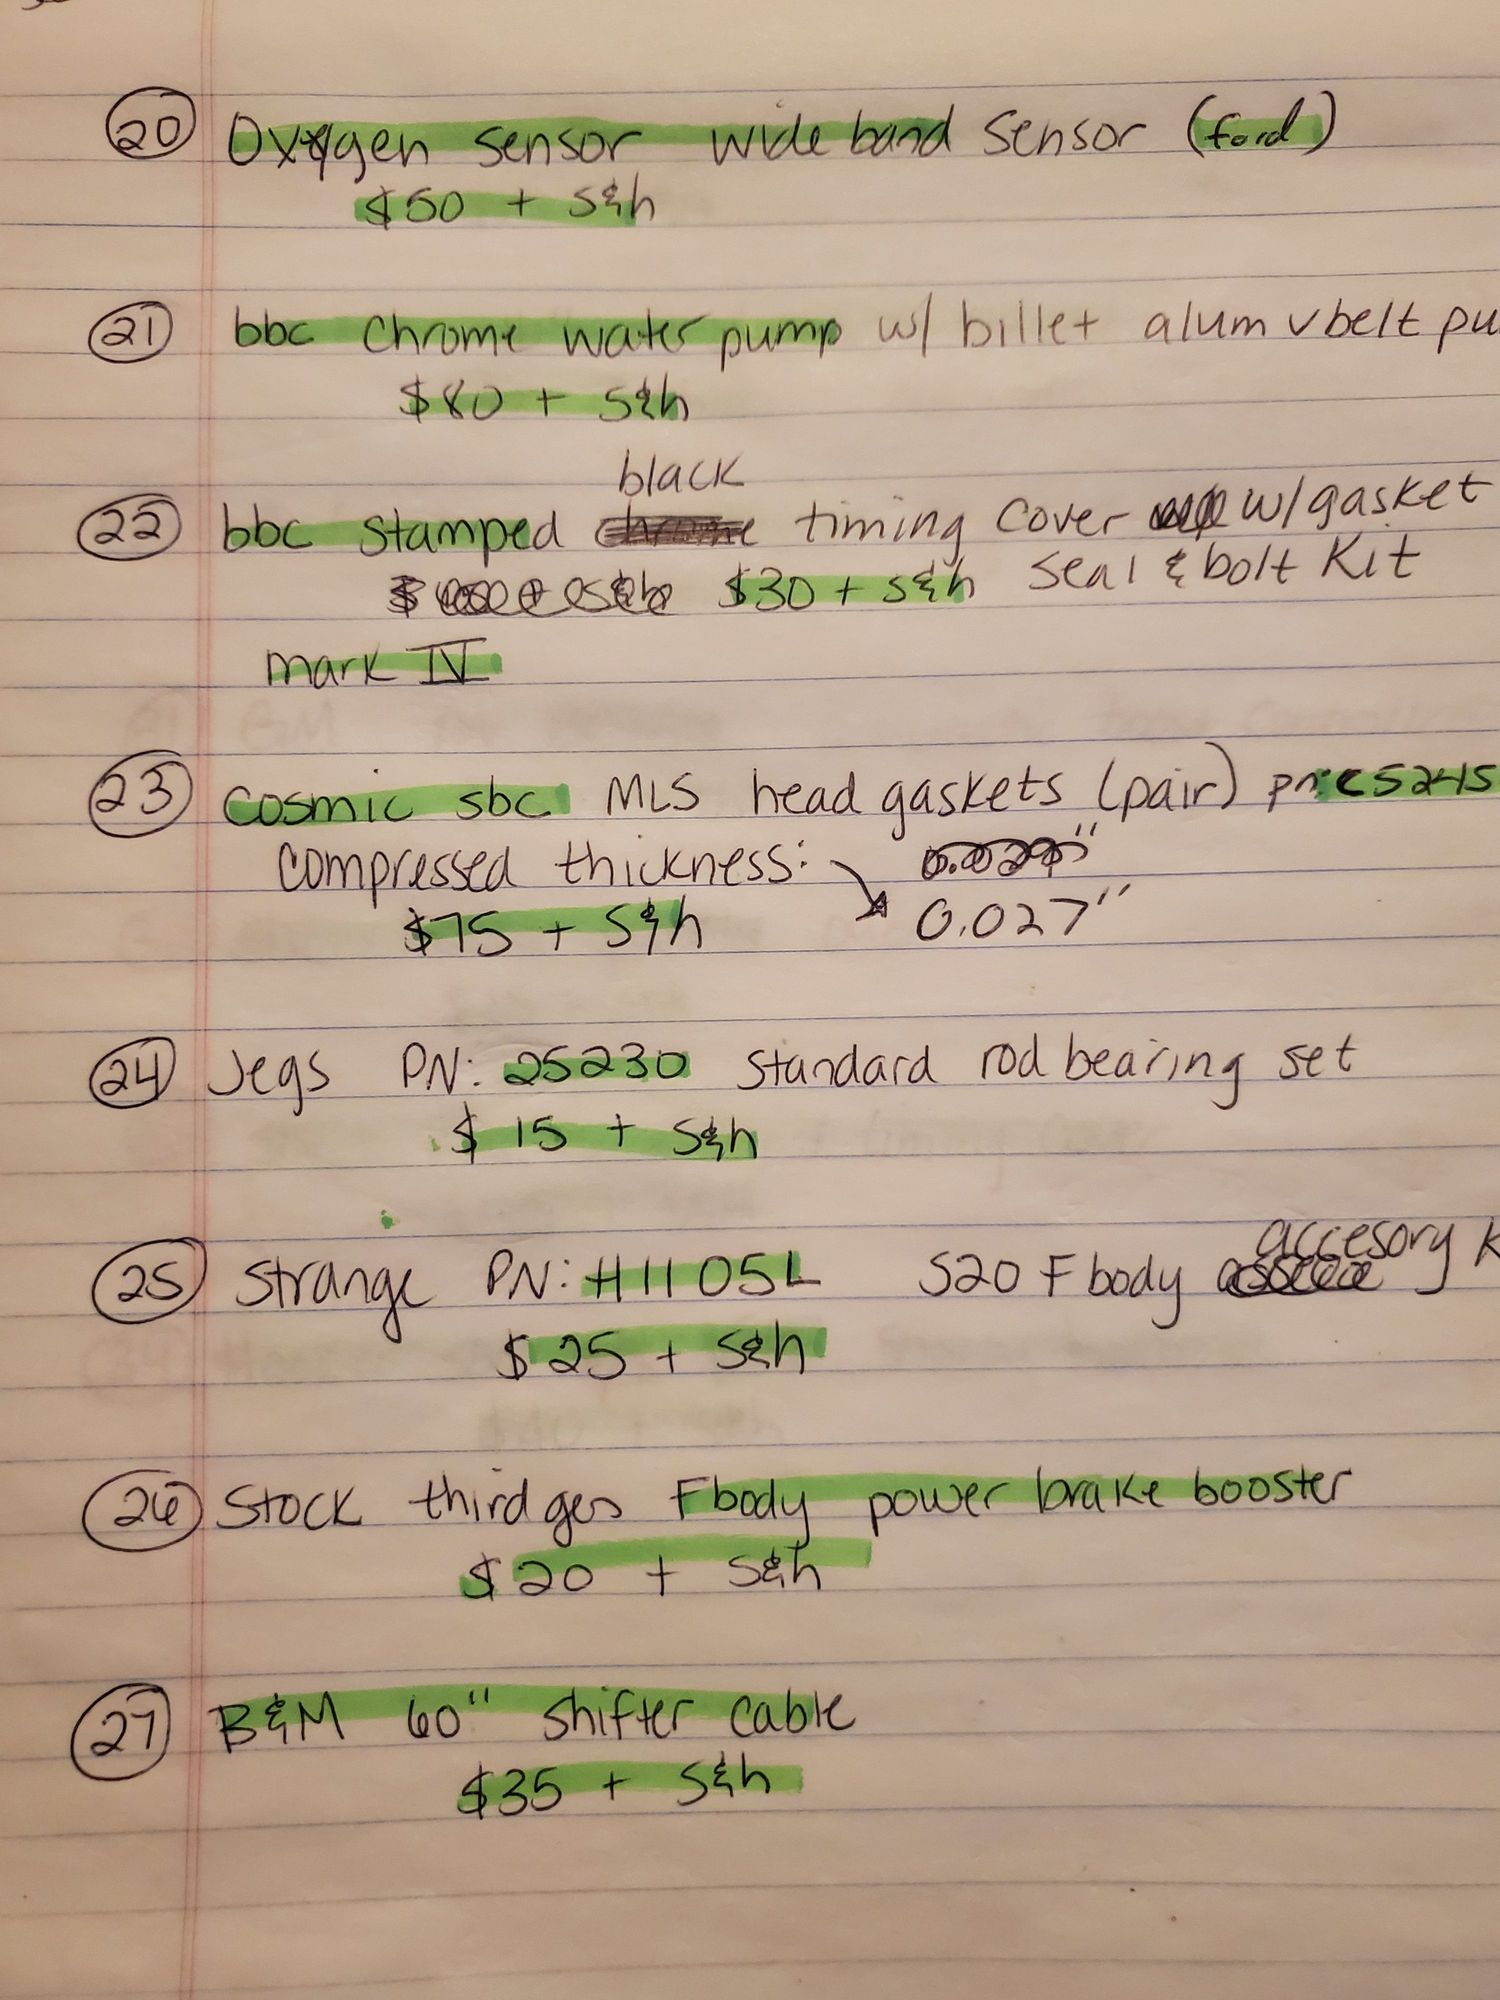 20 Oxygen sensor wide band sensor (ford)
$50 + s&h
21 bbc chrome water pump w/ billet alum v belt pu
$80 + s&h
black
22 bbc stamped chrome timing cover w/ gasket
$30 + s&h seal & bolt kit
mark IV
23 cosmic sbc MLS head gaskets (pair) pn: C5245
compressed thickness:
$75 + s&h 0.027"
24 Jegs PN: 25230 standard rod bearing set
$15 + s&h
accesory k
25 Strange PN: H1105L S20 F body
$25 + s&h
26 Stock third gen F body power brake booster
$20 + s&h
27 B&M 60" shifter cable
$35 + s&h